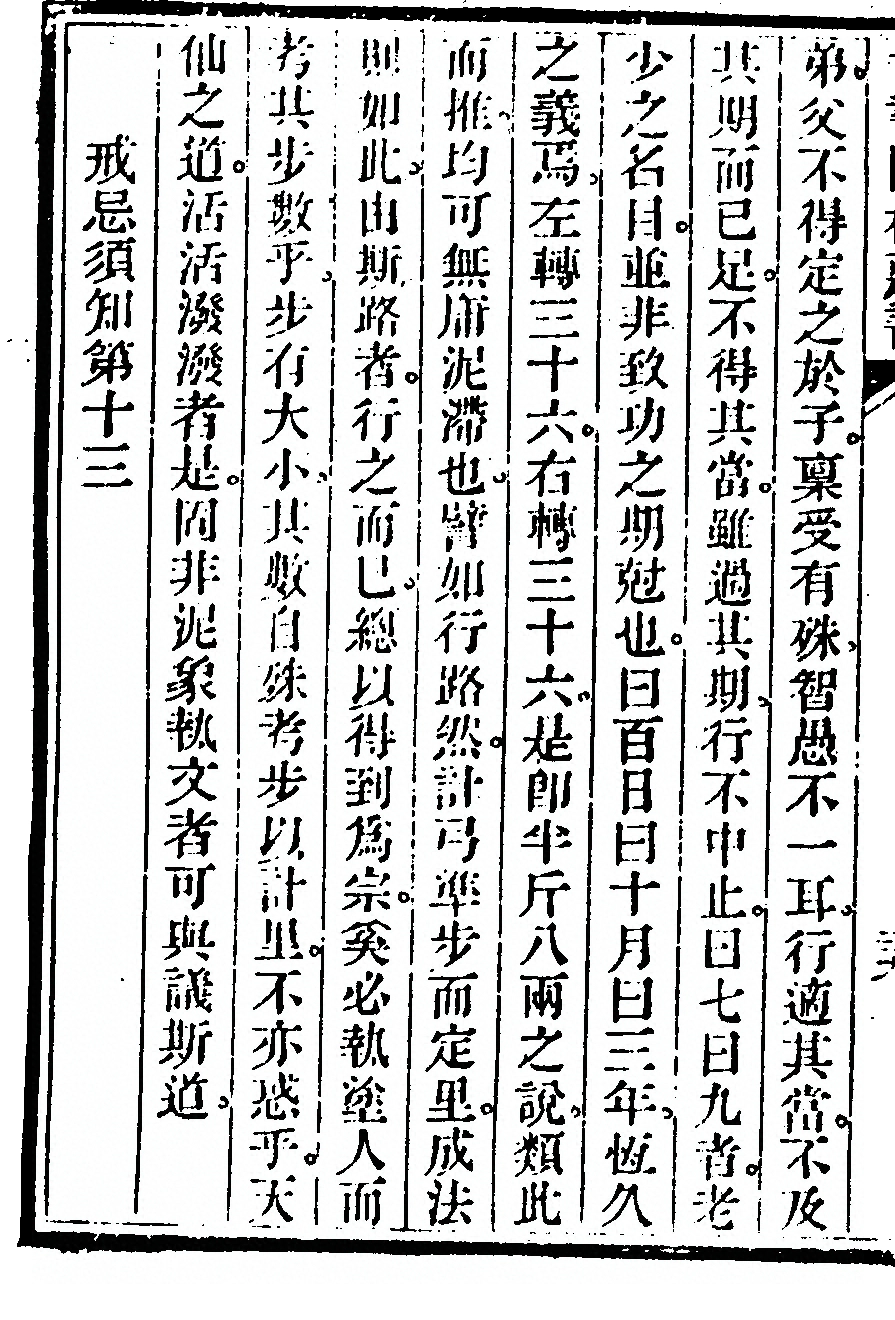 弟父不得定之於子。稟受有殊、智愚不一耳、行適其當。不及
其期而已足。不得其當。雖過其期、行不中止。曰七曰九者。老
少之名目。並非致功之期尅也。曰百日曰十月曰三年、恆久
之義焉、左轉三十六。右轉三十六、是即半斤八兩之說、類此
而推、均可無庸泥滯也、譬如行路然。計弓準步而定里。成法
則如此、由斯路者。行之而已、總以得到爲宗。奚必執塗人而
考其步數乎、步有大小、其數自殊考步以計里。不亦惑乎。天
仙之道。活活潑潑者是。固非泥象執文者可與議斯道、
戒忌須知第十三